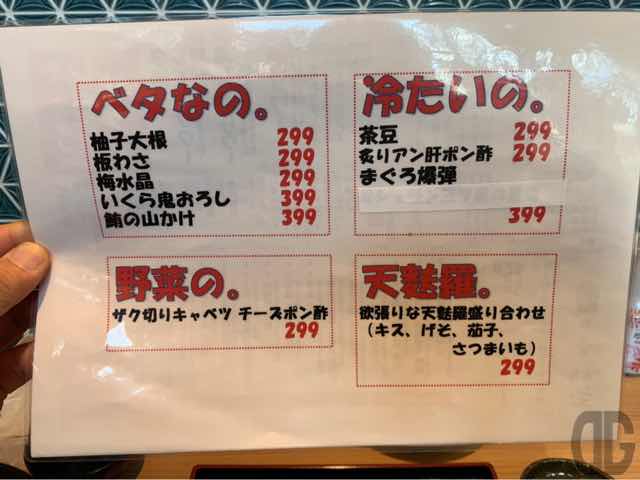 ベタなの。
柚子大根 299
板わさ 299
梅水晶 299
いくら鬼おろし 399
鮪の山かけ 399
冷たいの。
茶豆 299
炙りアン肝ポン酢 299
まぐろ爆弾
399
野菜の。
ザク切りキャベツ チーズポン酢
299
天麩羅。
欲張りな天麩羅盛り合わせ
(キス、げそ、茄子、
さつまいも)
299
DG